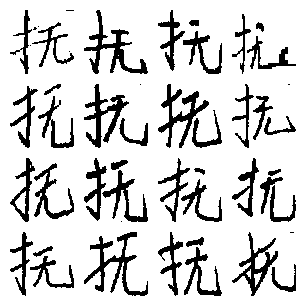 抚抚抚抚
抚抚抚抚
抚抚抚抚
抚抚抚抚